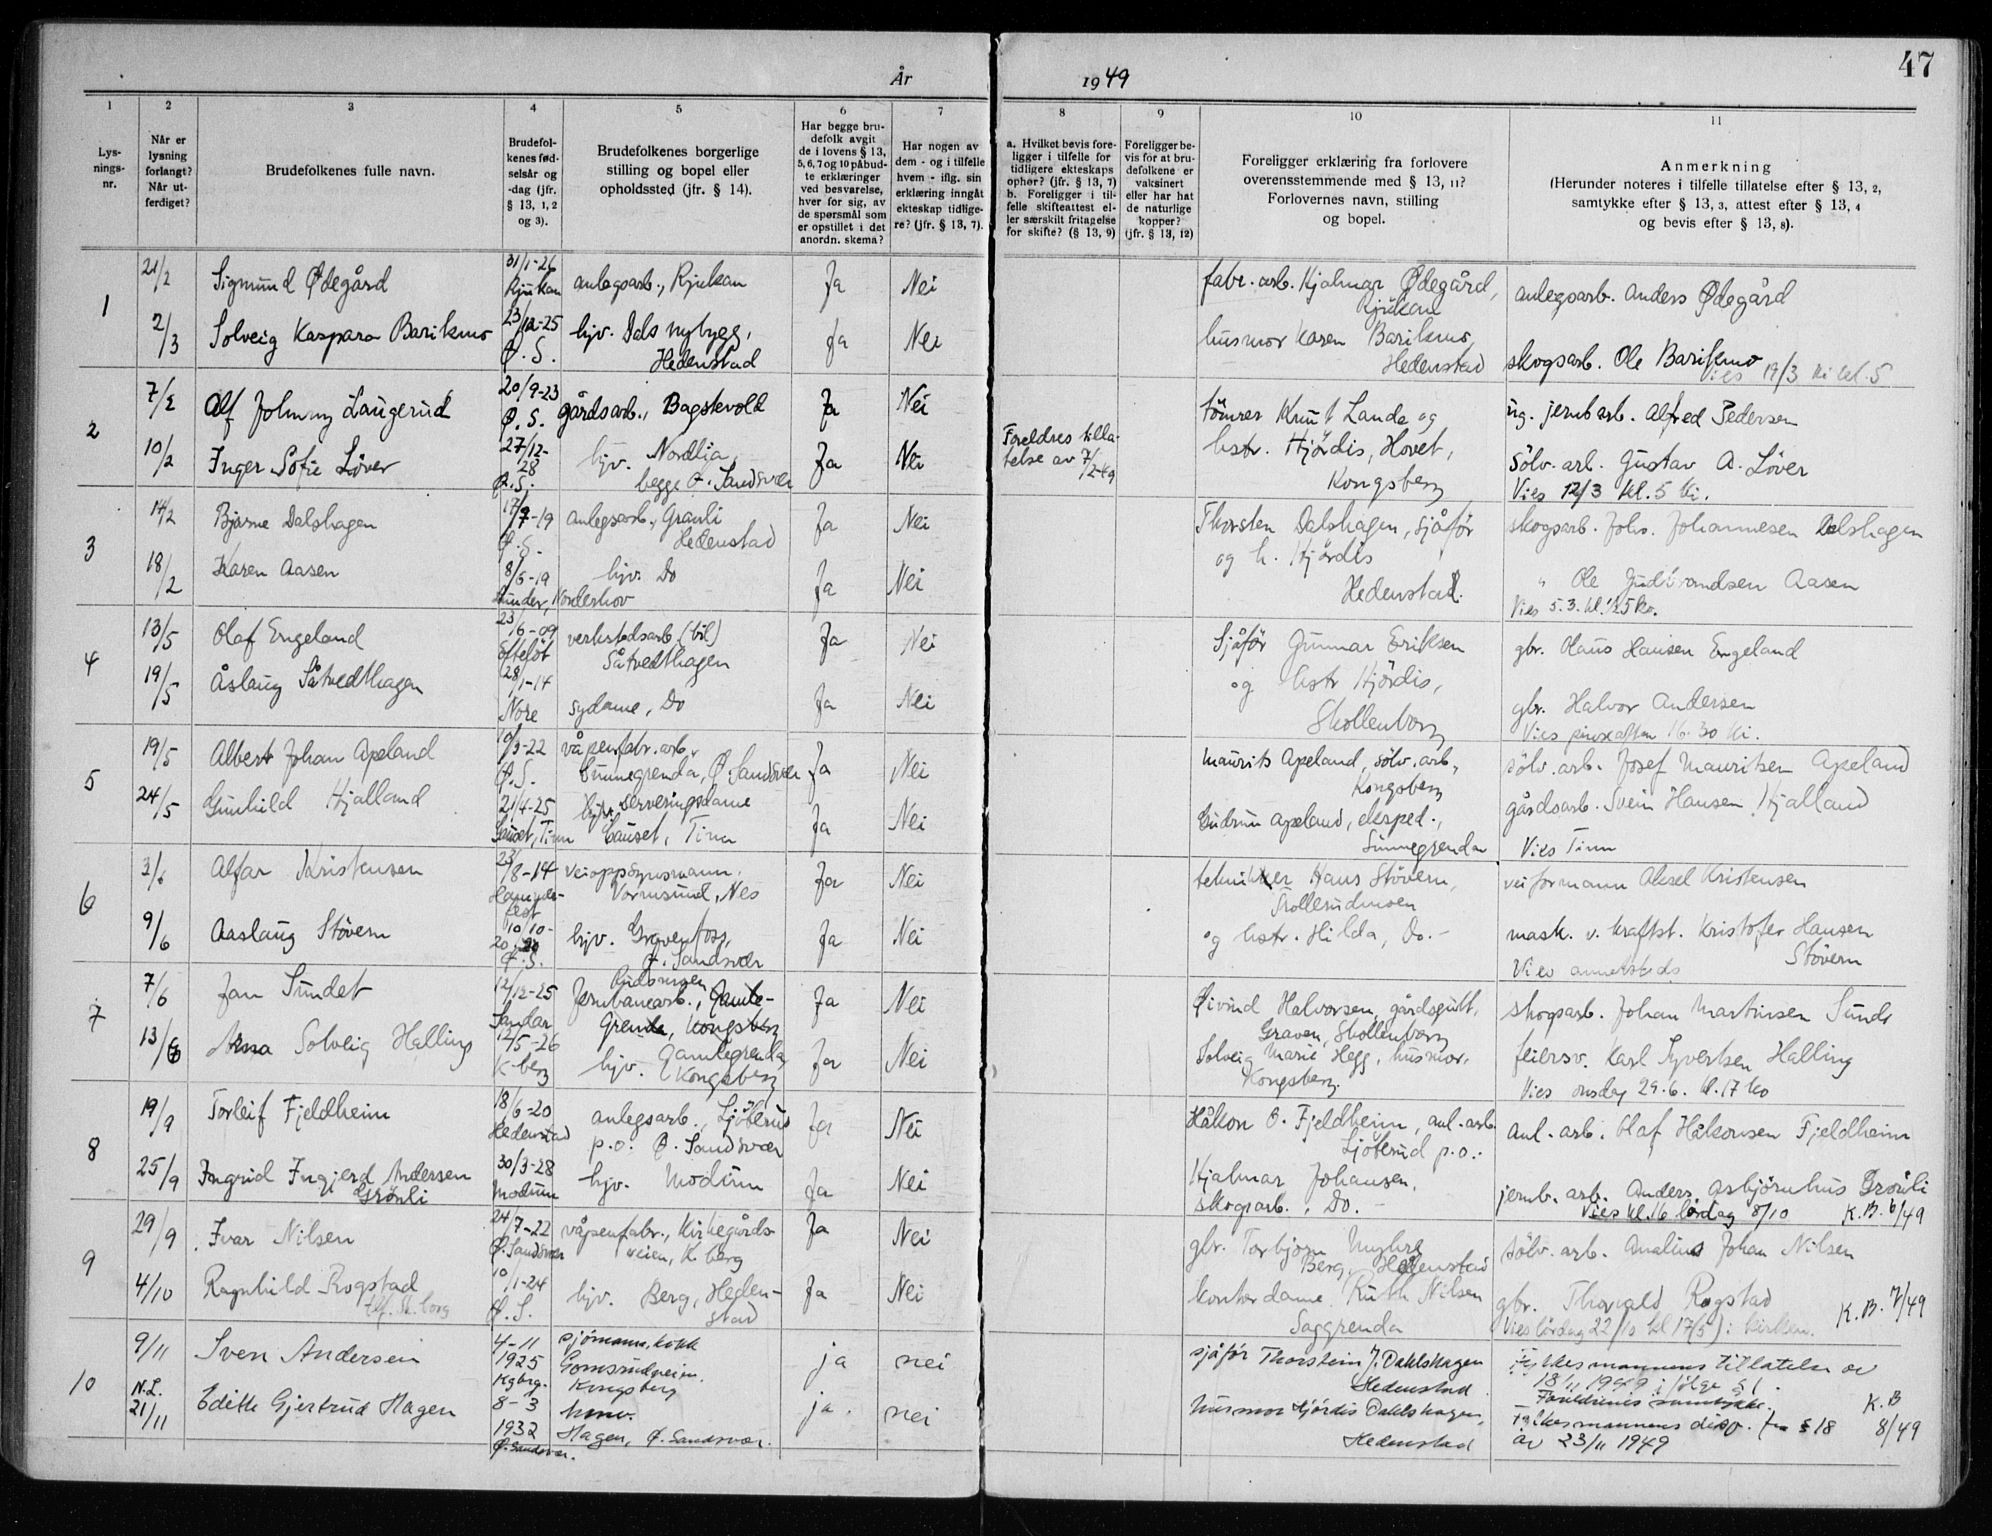 47
År 1949
1 2 3 4 5 6 7 8 9 10 11
Lysningsnr.
Når er lysning forlangt? Når utferdiget?
Brudefolkenes fulle navn.
Brudefolkenes fødselsår og -dag (jfr. § 13, 1, 2 og 3).
Brudefolkenes borgerlige stilling og bopel eller opholdssted (jfr. § 14).
Har begge brudefolk avgit de i lovens § 13, 5, 6, 7 og 10 påbudte erklæringer ved besvarelse, hver for sig, av de spørsmål som er opstillet i det anordn. skema?
Har nogen av dem - og i tilfelle hvem - iflg. sin erklæring inngåt ekteskap tidligere? (jfr. § 13, 7).
a. Hvilket bevis foreligger i tilfelle for tidligere ekteskaps ophør? (jfr. § 13, 7)
b. Foreligger i tilfelle skifteattest eller særskilt fritagelse for skifte? (§ 13, 9)
Foreligger bevis for at brudefolkene er vaksinert eller har hat de naturlige kopper? (jfr. § 13, 12)
Foreligger erklæring fra forlovere overensstemmende med § 13, 11? Forlovernes navn, stilling og bopel.
Anmerkning
(Herunder noteres i tilfelle tillatelse efter § 13, 2, samtykke efter § 13, 3, attest efter § 13, 4 og bevis efter § 13, 8).
1
21/2 Sigmund Ødegård 31/1-26 Rjukan anlegsarb., Rjukan Ja Nei fabr. arb. Hjalmar Ødegård, Rjukan anlegsarb. Anders Ødegård
2/3 Solveig Kaspara Barikmo 23/12-25 Ø.S. hjv. Dals nybygg, Hedenstad Ja Nei husmor Karen Barikmo, Hedenstad skogsarb. Ole Barikmo
Vies 19/3 ki kl. 5
2
7/2 Alf Johnny Laugerud 20/9-23 Ø.S. gårdsarb., Bagstevold Ja Nei tömrer Knut Lande og ug. jernbarb. Alfred Pedersen
10/2 Inger Sofie Löver 27/12-28 Ø.S. hjv. Nordlia, begge Ø. Sandsvær Ja Nei Foreldres tillatelse av 7/2-49 hstr. Hjördis, Hovet, Kongsberg Sölv. arb. Gustav A. Löver
Vies 12/3 kl. 5 ki.
3
14/2 Bjarne Dalshagen 17/7-19 Ø.S. anlegsarb., Granli Hedenstad Ja Nei Thorsten Dalshagen, sjåför skogsarb. Johs. Johannesen Dalshagen
18/2 Karen Aasen 8/6-19 Lunder, Norderhov hjv. Do Ja Nei og h. Hjördis Hedenstad. " Ole Gudbrandsen Aasen
Vies 5.3. kl. 1/2 5 ko.
4
13/5 Olaf Engeland 23/6-09 Efteløt verkstedsarb. (bil) Såtvedthagen Ja Nei Sjåför Gunnar Eriksen gbr. Olaus Hansen Engeland
19/5 Åslaug Såtvedthagen 28/1-14 Nore sydame, Do Ja Nei og hstr Hjördis, Skollenborg gbr. Halvor Andersen
Vies pinseaften 16.30 ki.
5
19/5 Albert Johan Apeland 10/3-22 Ø.S. våpenfabr. arb., Sunnegrenda, Ø. Sandsvær Ja Nei Maurits Apeland, sölv. arb., Kongsberg sölv. arb. Josef Mauritsen Apeland
24/5 Gunhild Hjalland 21/4-25 Gauset, Tinn serveringsdame Gauset, Tinn Ja Nei Gudrun Apeland, eksped., Sunnegrenda gårdsarb. Svein Hansen Hjalland
Vies Tinn
6
3/6 Alfar Kristensen 23/8-14 Hammerfest veioppsynsmann, Vormsund, Nes Ja Nei tekniker Hans Stövern, Trollerudmoen veiformann Aksel Kristensen
9/6 Aaslaug Stövern 10/10-20 Ø.S. hjv. Gravenfoss, Ø. Sandsvær Ja Nei og hstr. Hilda, Do.- mask. v. kraftst. Kristofer Hansen Stövern
Vies annersteds
7
7/6 Jan Sundet 12/12-25 Sandar Jernbanearb., Gamlegrenda, Kongsberg Ja Nei Øivind Halvorsen, gårdsgutt, Graven, Skollenborg skogsarb. Johan Martinsen Sunde
13/6 Anna Solveig Halling 12/5-26 K-berg hjv. Gamlegrenda, Kongsberg Ja Nei Solveig Marie Hegg, husmor, Kongsberg. feiersv. Karl Syvertsen Halling
Vies onsdag 29.6. kl. 17 ko
8
19/9 Torleif Fjeldheim 18/6-20 Hedenstad anlegsarb., Ljöterud p.o. Ø. Sandsvær Ja Nei Håkon O. Fjeldheim, anl. arb. Ljöterud p.o. anl. arb. Olaf Håkonsen Fjeldheim
25/9 Ingrid Ingjerd Andersen Grönli 30/3-28 Modum hjv. Modum Ja Nei Hjalmar Johansen, skogsarb., Do. jernb. arb. Anders Asbjörnhus Grönli
Vies kl. 16 lördag 8/10 K.B. 6/49
9
29/9 Ivar Nilsen 24/7-22 Ø. Sandsvær våpenfabr., Kirkegårdsveien, K.berg Ja Nei gbr. Torbjörn Myhre Berg, Hedenstad sölv. arb. Analius Johan Nilsen
4/10 Ragnhild Rogstad 10/1-24 Ø.S. hjv. Berg, Hedenstad Ja Nei kontordame Ruth Nilsen Saggrenda gbr. Thorvald Rogstad
Vies lördag 22/10 kl 17(5) i kirken. K.B. 7/49
10
9/11 Sven Andersen 4-11 1925 Kgbrg. sjömann, kokk Gomsrudveien, Kongsberg ja nei sjåför Thorstein J. Dahlshagen Hedenstad Fylkesmannens tillatelse av 18/11 1949 i følge § 1.
N.L. 21/11 Edith Gjertrud Hagen 8-3 1932 Ø. Sandsvær. hmv. Hagen, Ø. Sandsvær. ja. nei husmor Hjördis Dahlshagen, Hedenstad Foreldrenes samtykke.
Fylkesmannens disp. fra § 18 av 23/11 1949 K.B 8/49